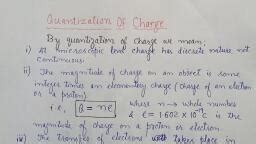 Quantization Of Charge
By quantization of charge we mean;
i) At microscopic level charge has discrete nature not
continuous.
ii) The magnitude of charge on an object is some
integer times an elementary charge (charge of an electron
or a proton).
i.e., Q = ne where n → whole number
& e = 1.602 × 10 C is the
magnitude of charge on a proton or electron
iii) The transfer of electrons takes place in